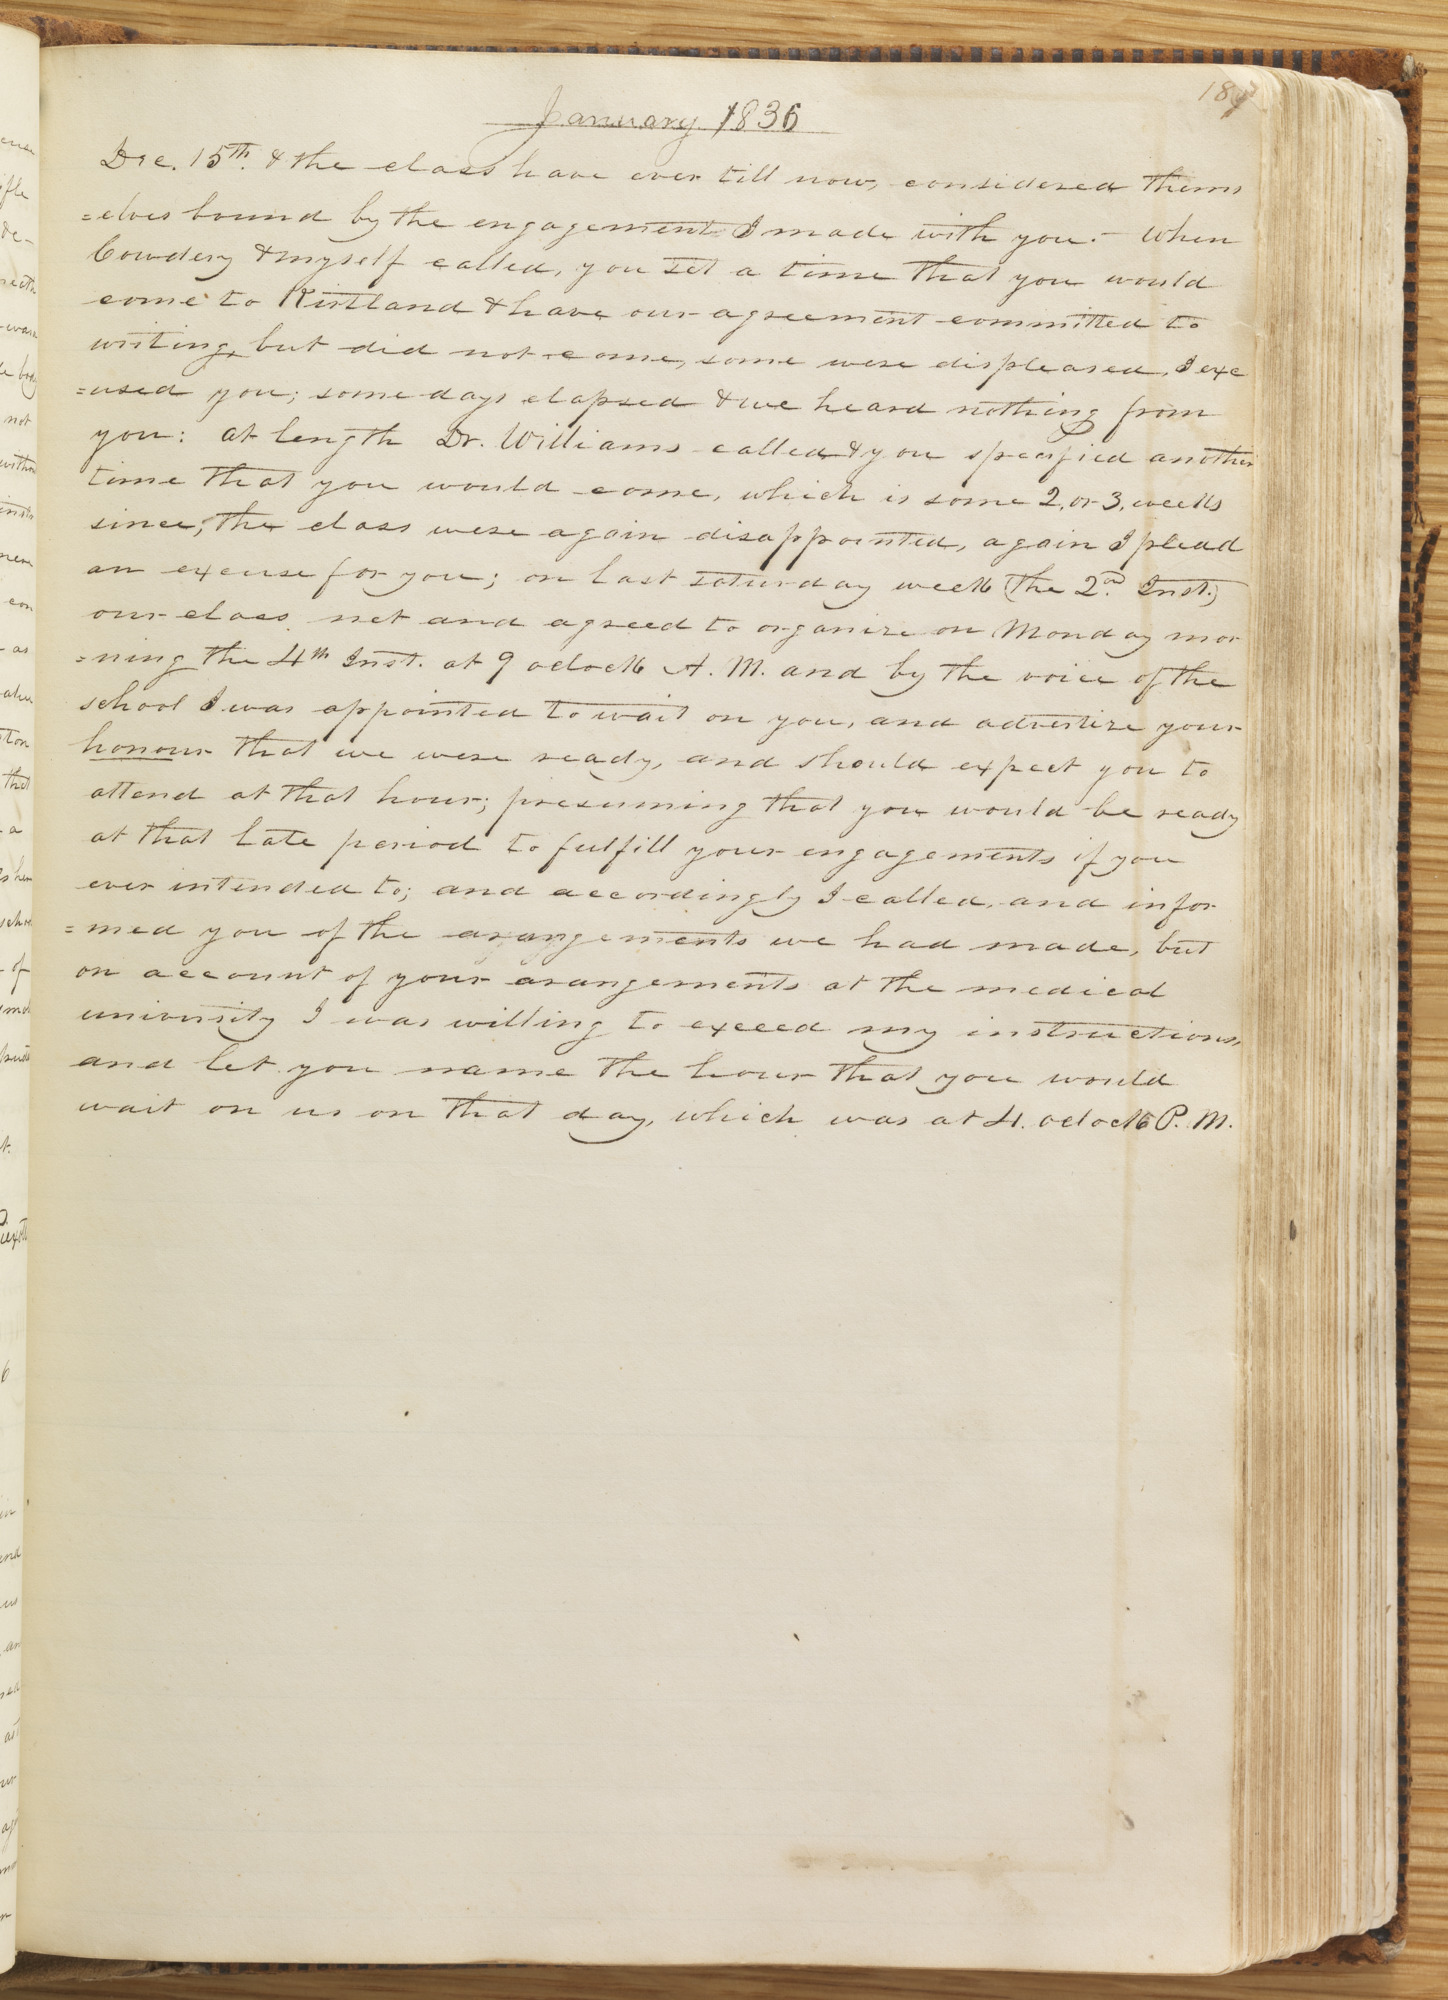 January 1836
Dec. 15th. & the class have ever till now, considered thems
=elves bound by the engagement I made with you.— When
Cowdery & myself called, you set a time that you would
come to Kirtland & have our agreement committed to
writing, but did not come, some were displeased, I exc
=used you; some days elapsed & we heard nothing from
you: at length Dr. Williams called & you specified another
time that you would come, which is some 2, or 3, weeks
since; the class were again disappointed, again I plead
an excuse for you; on last saturday week (the 2nd. Inst.)
our class met and agreed to organize on Monday mor
=ning the 4th Inst. at 9 oclock A. M. and by the voice of the
school I was appointed to wait on you, and advertize your
honour that we were ready, and should expect you to
attend at that hour; presuming that you would be ready
at that late period to fulfill your engagements if you
ever intended to; and accordingly I called, and infor
=med you of the arangements we had made, but
on account of your arangements at the medical
university I was willing to exceed my instructions,
and let you name the hour that you would
wait on us on that day, which was at 4. oclock P. M.